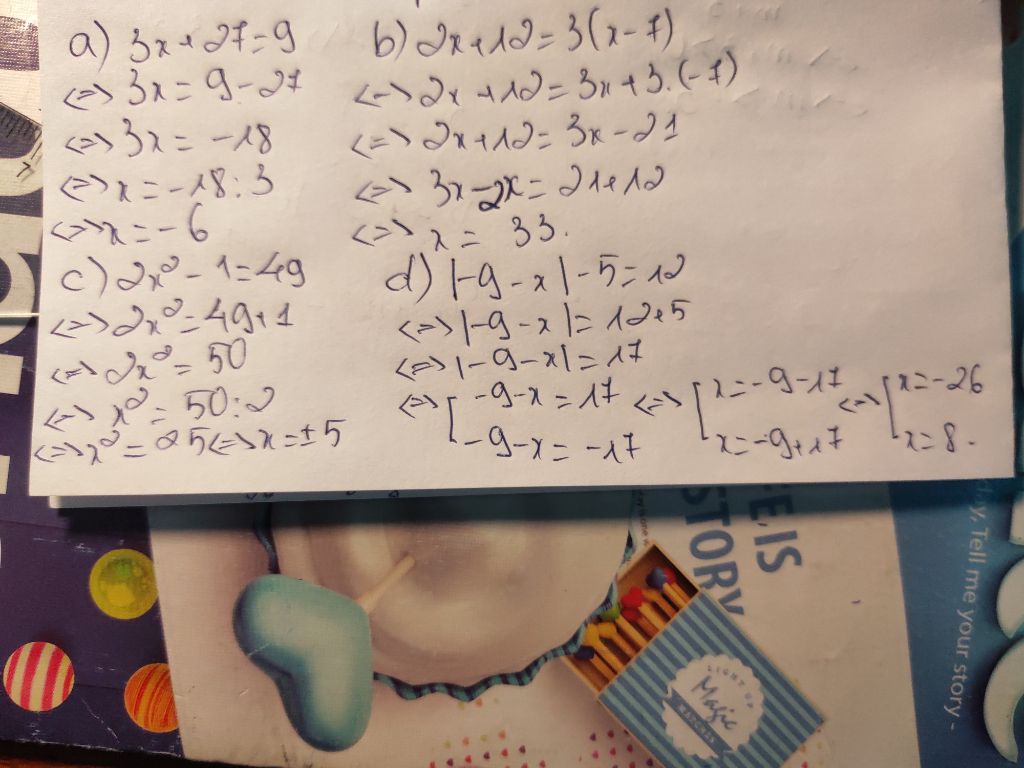 a) 3x+27=9
<=> 3x = 9-27
<=> 3x = -18
<=> x = -18:3
<=> x = -6
b) 2x+12=3(x-7)
<-> 2x+12=3x+3.(-7)
<=> 2x+12=3x-21
<=> 3x-2x=21+12
<=> x = 33.
c) 2x²-1=49
<=> 2x²=49+1
<=> 2x²=50
<=> x²=50:2
<=> x²=25 <=> x=±5
d) |-9-x|-5=12
<=> |-9-x|=12+5
<=> |-9-x|=17
<=> [ -9-x=17 <=> [ x=-9-17 <=> [ x=-26
-9-x=-17 x=-9+17 x=8.
E IS
STORY
Tell me your story-
LIGHT UP
Magic
MATCHES